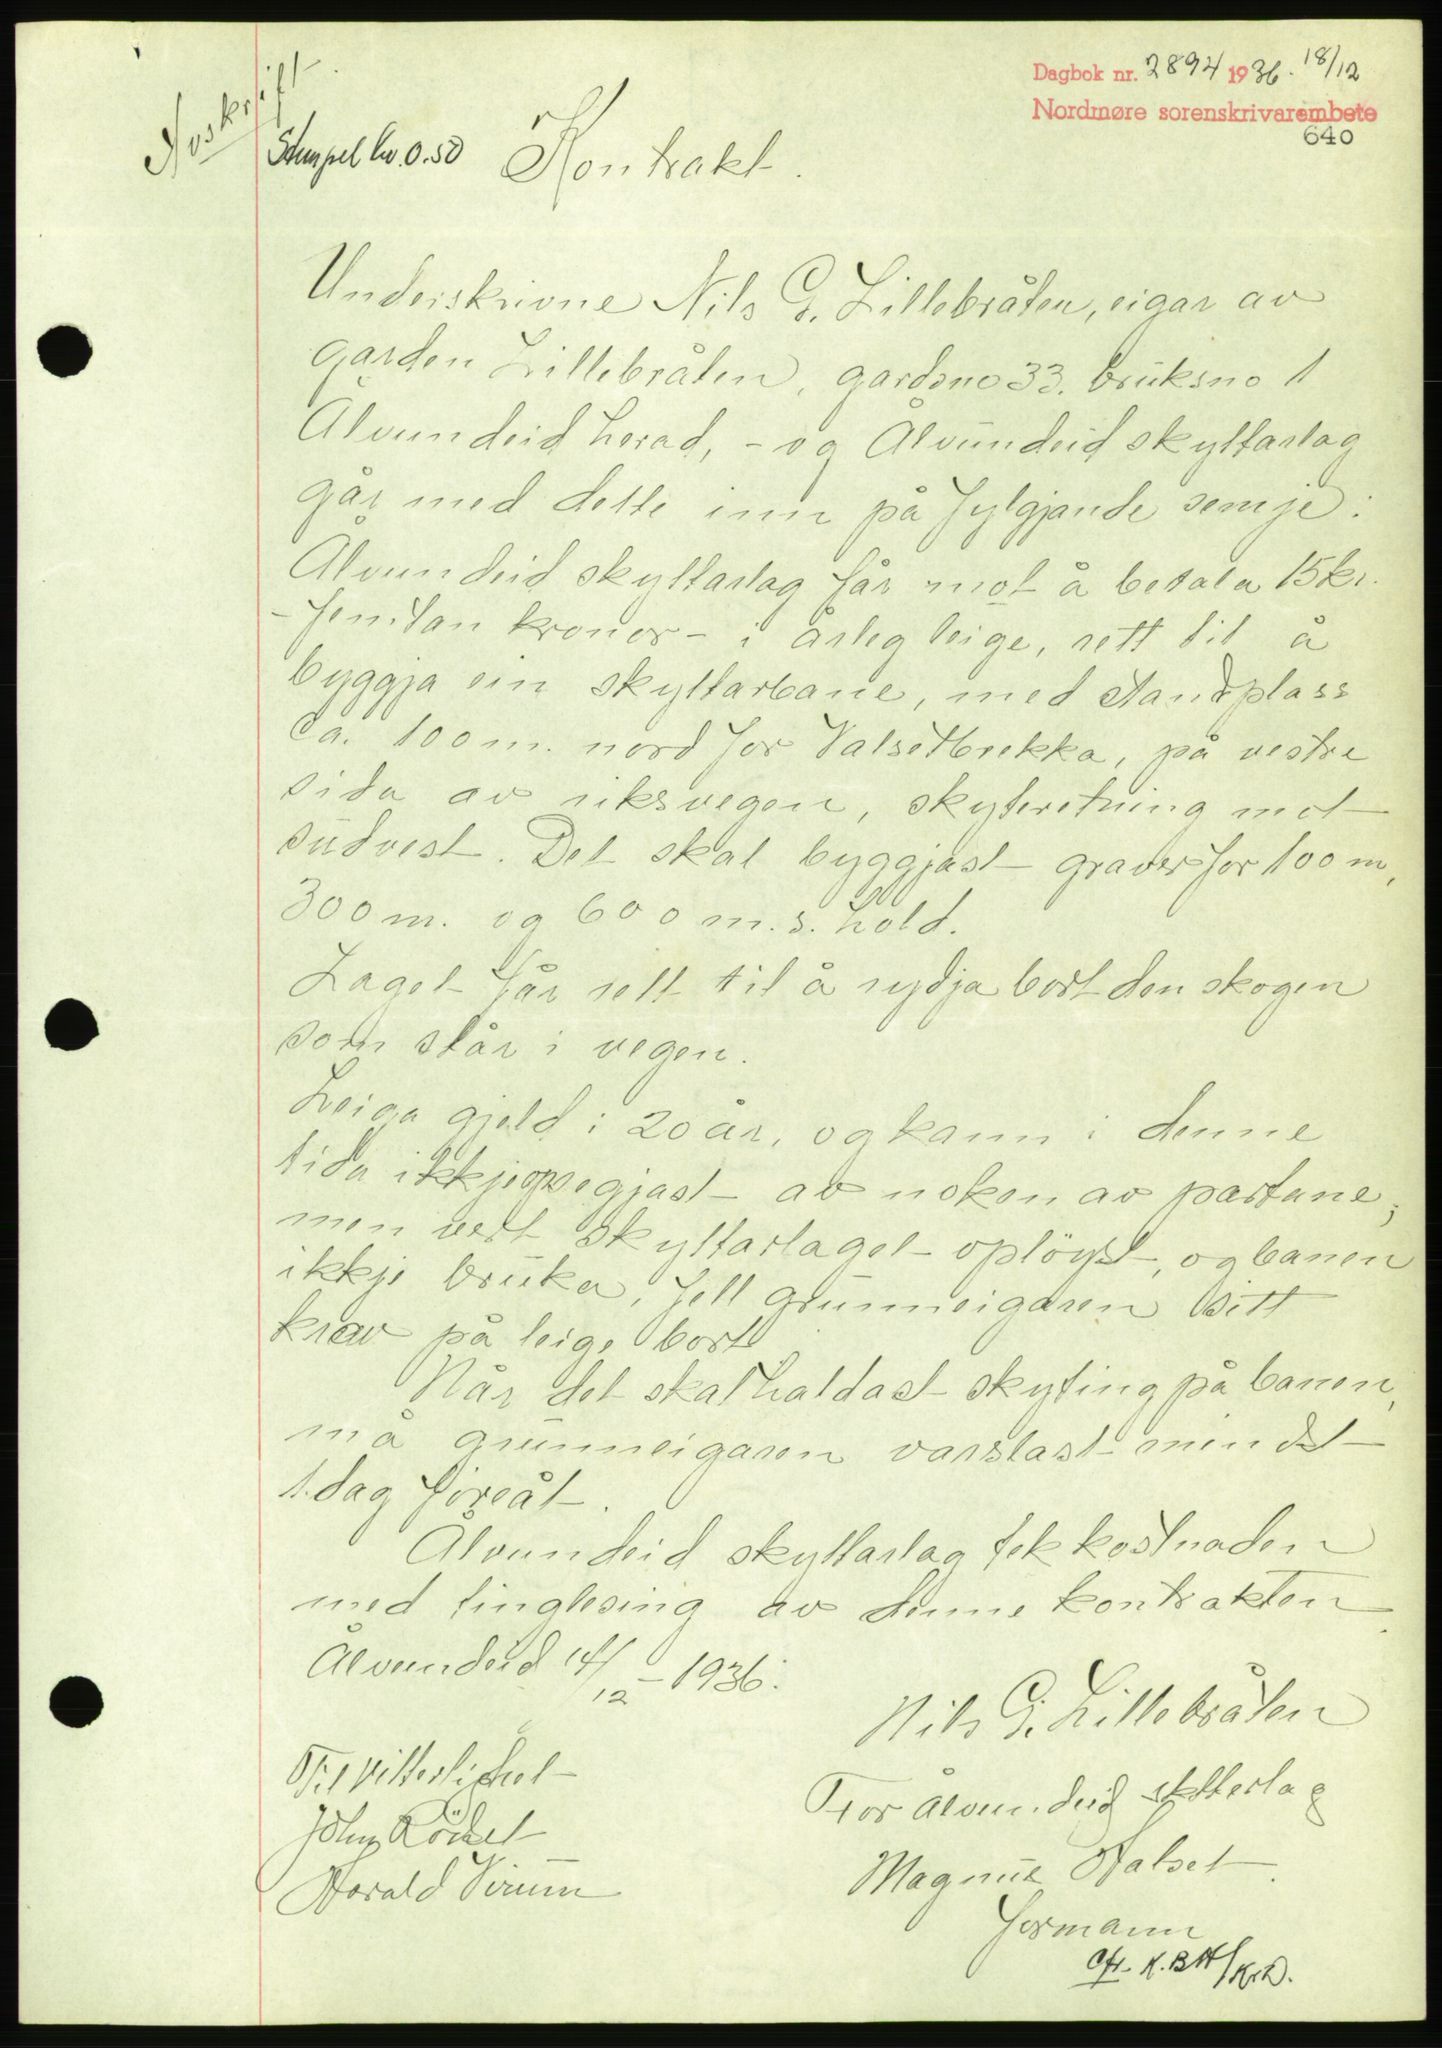 Dagbok nr. 2894 1936. 18/12
Nordmøre sorenskrivarembete
640
Avskrift
Stempel kr. 0.50
Kontrakt.
Underskrivne Nils G. Lillebråten, eigar av
garden Lillebråten, gardsno 33. bruksno 1
Ålvundeid herad, - og Ålvundeid skyttarlag
går med dette inn på fylgjande semje:
Ålvundeid skyttarlag får mot å betala 15 kr.
- femtan kronor - i årleg leige, rett til å
byggja ein skyttarbane, med standplass
ca. 100 m. nord for Valsetbrekka, på vestre
sida av riksvegen, skyteretning mot
sudvest. Det skal byggjast graver for 100 m,
300 m. og 600 m.s. hold.
Laget får rett til å rydja bort den skogen
som står i vegen.
Leiga gjeld i 20 år, og kann i denne
tida ikkje opsegjast av noken av partane;
men vert skyttarlaget opløyst, og banen
ikkje bruka, fell grunneigaren sitt
krav på leige bort.
Når det skal haldast skyting på banen,
må grunneigaren varslast mindst
1. dag foreåt.
Ålvundeid skyttarlag tek kostnaden
med tinglesing av denne kontrakten.
Ålvundeid 14/12 - 1936.
Nils G. Lillebråten
Til vitterlighet
For Ålvundeid skytterlag
John Rödset
Magnus Halset
Harald Virum
formann
cfr. K.B H/Kr.D.